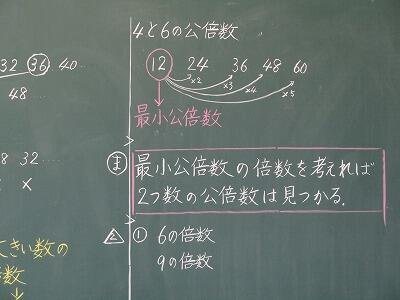 32 36 40…
48
8 32……
x x
てきい数の
数
4と6の公倍数
12 24 36 48 60
×2 ×3 ×4 ×5
最小公倍数
ま 最小公倍数の倍数を考えれば
2つ数の公倍数は見つかる.
① 6の倍数
9の倍数